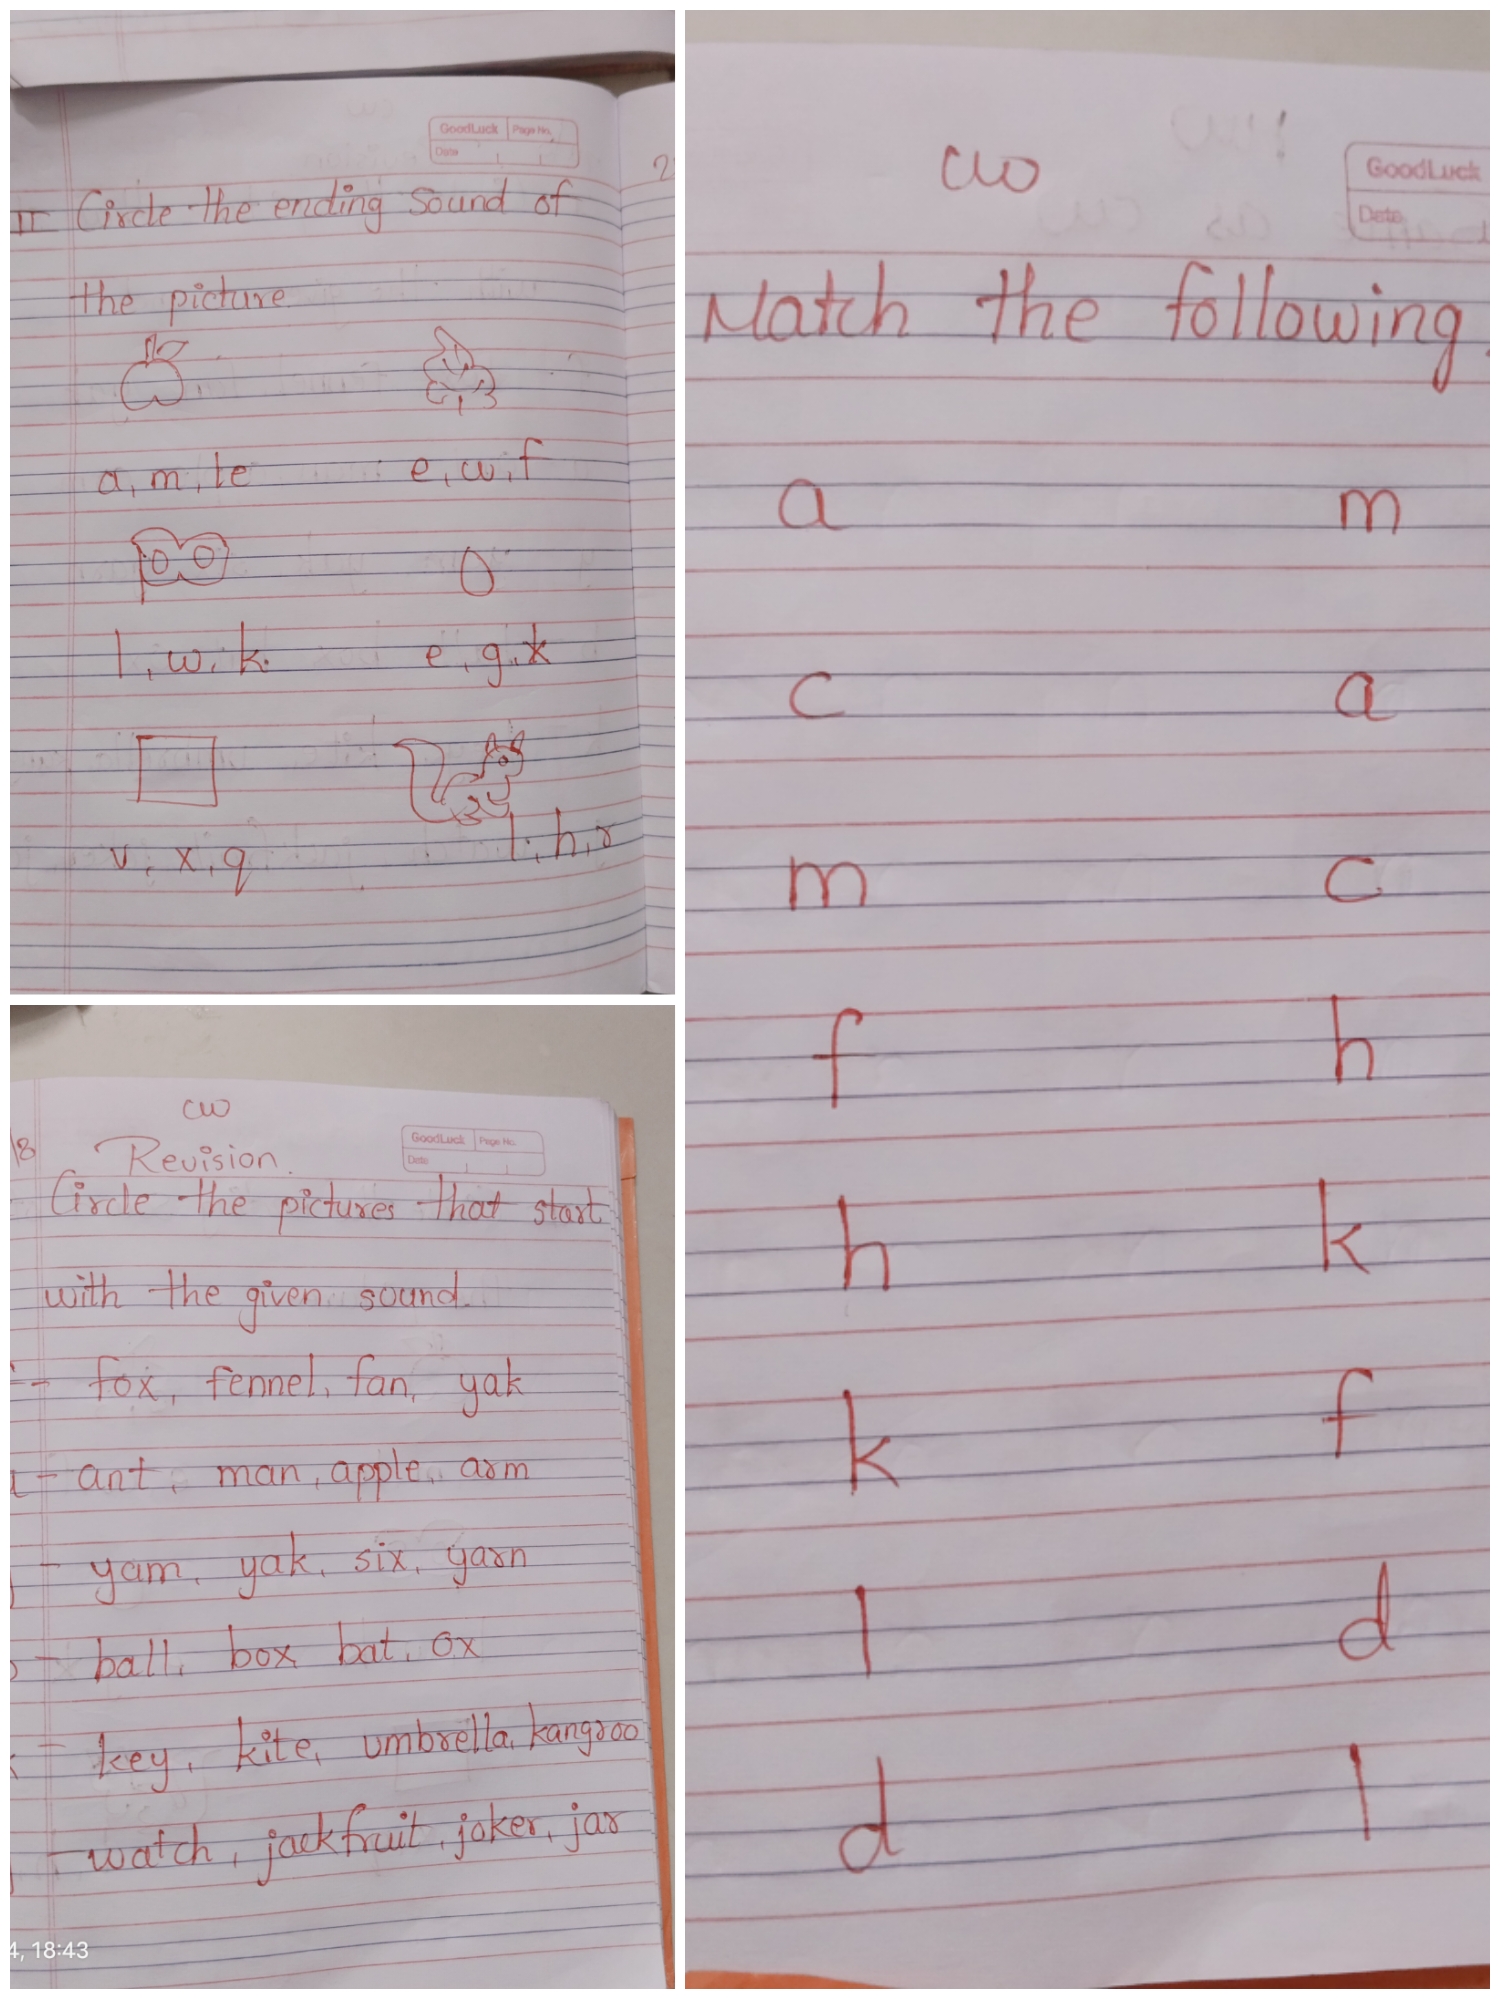 GoodLuck Page No.
Date
2
II Circle the ending sound of
the picture
a, m, le e, w, f
l, w, k. e, g, k
v, x, q l, h, r
cw
18 Revision.
GoodLuck Page No.
Date
Circle the pictures that start
with the given sound.
- fox, fennel, fan, yak
- ant, man, apple, arm
- yam, yak, six, yarn
- ball, box, bat, ox
- key, kite, umbrella, kangroo
- watch, jackfruit, joker, jar
4, 18:43
cw
GoodLuck
Date
Match the following.
a m
c a
m c
f h
h k
k f
l d
d l